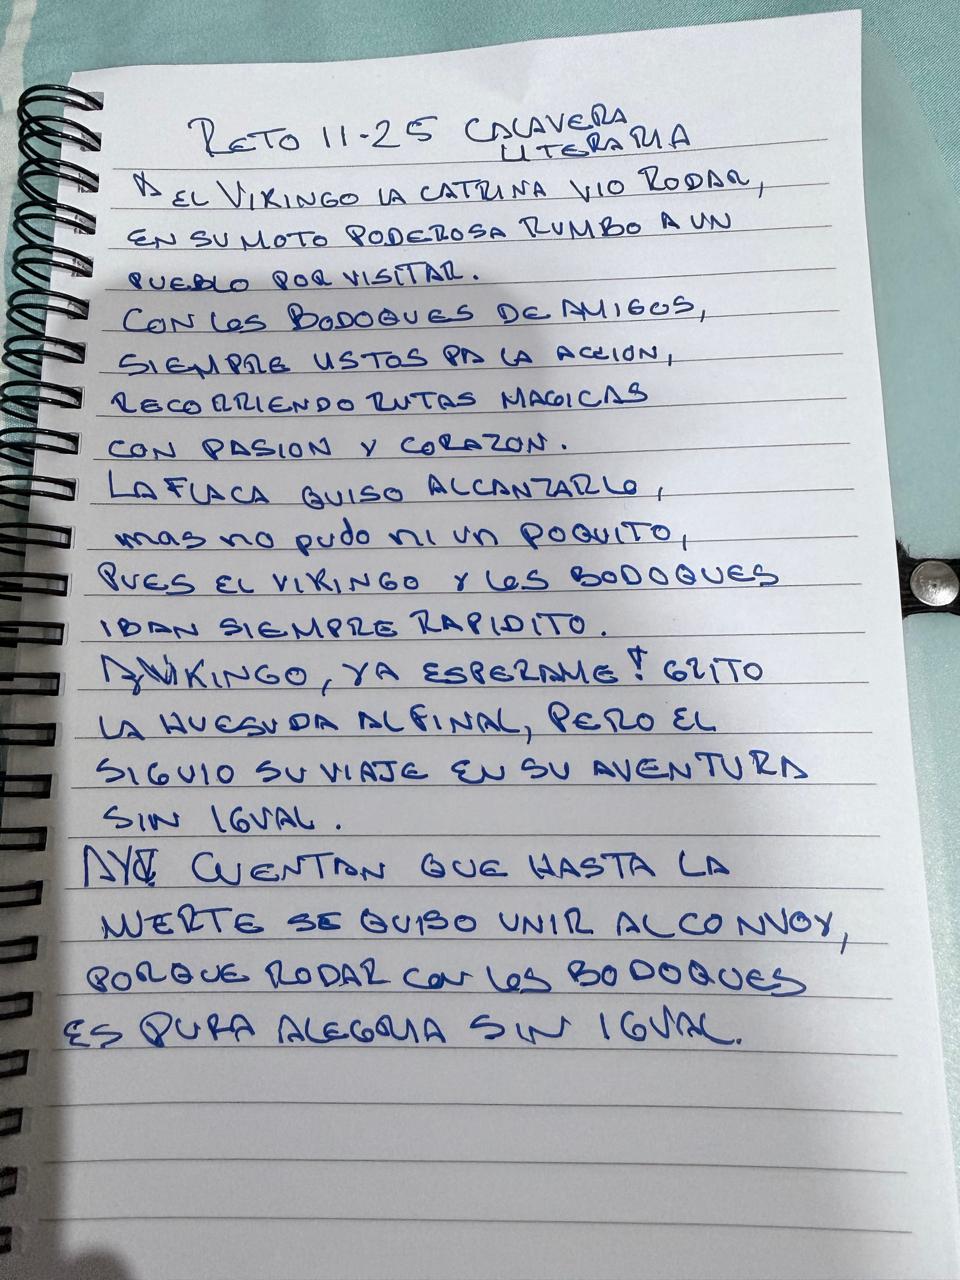 RETO 11-25 CALAVERA
LITERARIA
A EL VIKINGO LA CATRINA VIO RODAR,
EN SU MOTO PODEROSA RUMBO A UN
PUEBLO POR VISITAR.
CON LOS BODOQUES DE AMIGOS,
SIEMPRE LISTOS PA LA ACCION,
RECORRIENDO RUTAS MAGICAS
CON PASION Y CORAZON.
LA FLACA QUISO ALCANZARLO,
mas no pudo ni un POQUITO,
PUES EL VIKINGO Y LOS BODOQUES
IBAN SIEMPRE RAPIDITO.
VIKINGO, YA ESPERAME! GRITO
LA HUESUDA AL FINAL, PERO EL
SIGUIO SU VIAJE EN SU AVENTURA
SIN IGUAL.
CUENTAN QUE HASTA LA
MUERTE SE QUISO UNIR AL CONVOY,
PORQUE RODAR CON LOS BODOQUES
ES PURA ALEGRIA SIN IGUAL.